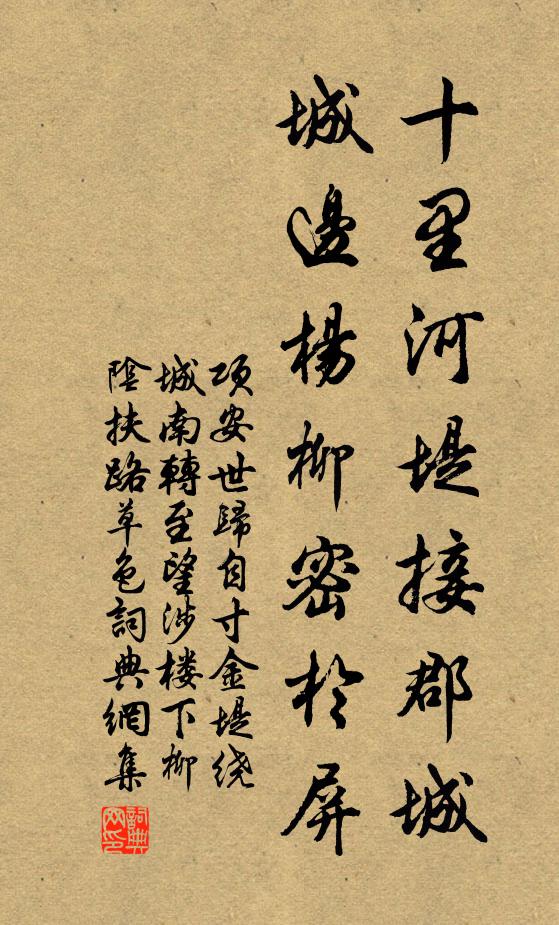 十里河堤接郡城
城邊楊柳密於屏
項安世歸自寸金堤绕
城南轉至望涉楼下柳
陰扶路草色詞典網集
詞典
网印